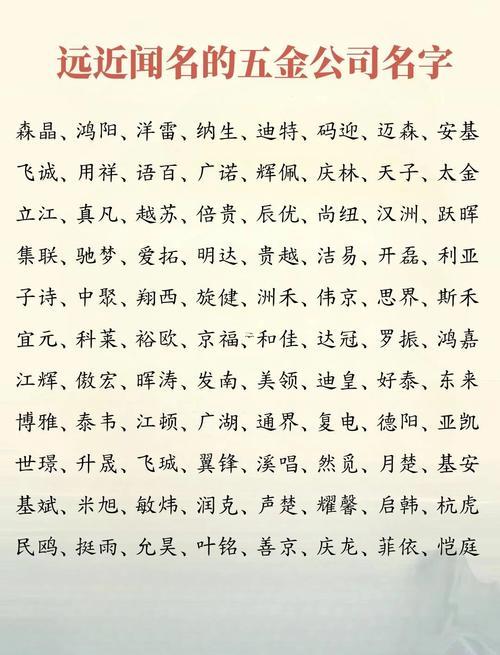 远近闻名的五金公司名字
森晶、鸿阳、洋雷、纳生、迪特、码迎、迈森、安基
飞诚、用祥、语百、广诺、辉佩、庆林、天子、太金
立江、真凡、越苏、倍贵、辰优、尚纽、汉洲、跃晖
集联、驰梦、爱拓、明达、贵越、洁易、开磊、利亚
子诗、中聚、翔西、旋健、洲禾、伟京、思界、斯禾
宜元、科莱、裕欧、京福、和佳、达冠、罗振、鸿嘉
江辉、傲宏、晖涛、发南、美领、迪皇、好泰、东来
博雅、泰韦、江顿、广湖、通界、复电、德阳、亚凯
世璟、升晟、飞珹、翼锋、溪唱、然觅、月楚、基安
基斌、米旭、敏炜、润克、声楚、耀馨、启韩、杭虎
民鸥、挺雨、允昊、叶铭、善京、庆龙、菲依、恺庭